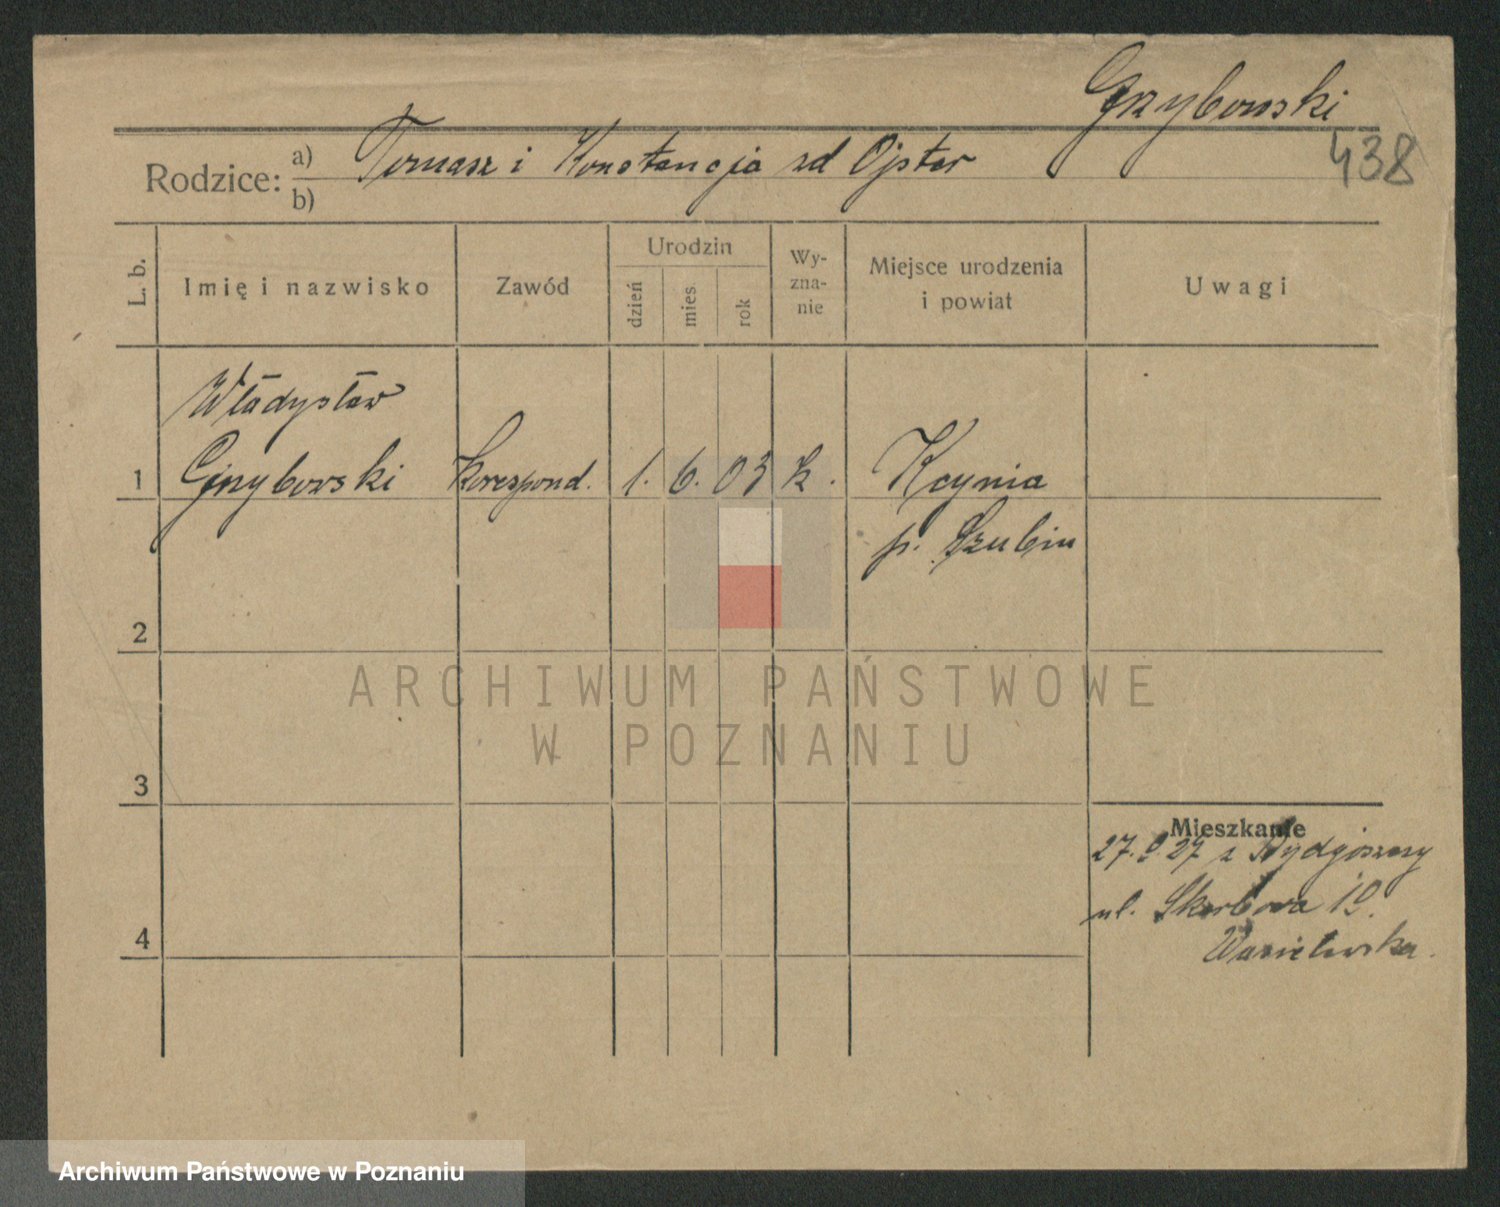 Grzybowski
438
Rodzice: a) Tomasz i Konstancja zd Ojster
b)
L. b.
Imię i nazwisko
Zawód
Urodzin
dzień
mies.
rok
Wy-
zna-
nie
Miejsce urodzenia
i powiat
Uwagi
Władysław
1 Grzybowski korespond. 1. 6. 03 k. Kcynia
p. Szubin
2
ARCHIWUM PAŃSTWOWE
W POZNANIU
3
Mieszkanie
27. 9. 27 z Bydgoszczy
ul. Skarbowa 19.
4
Archiwum Państwowe w Poznaniu